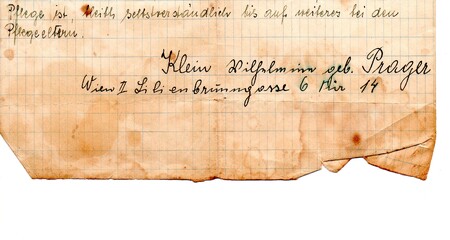 Pflege ist, bleibt selbstverständlich bis auf weiteres bei den
Pflegeeltern.
Klein Wilhelmine geb. Prager
Wien II Lilienbrunngasse 6 Tür 14